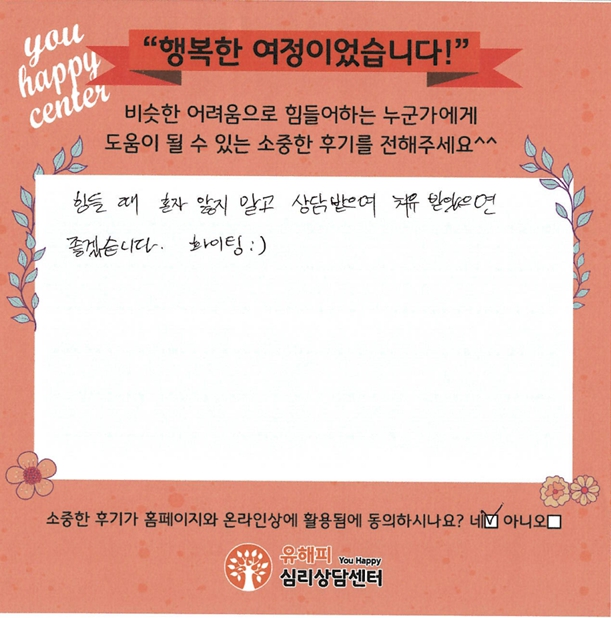 you
happy
center
“행복한 여정이었습니다!”
비슷한 어려움으로 힘들어하는 누군가에게
도움이 될 수 있는 소중한 후기를 전해주세요^^
힘들 때 혼자 앓지 말고 상담받으며 치유 받았으면
좋겠습니다. 화이팅 :)
소중한 후기가 홈페이지와 온라인상에 활용됨에 동의하시나요? 네☑ 아니오☐
유해피 You Happy
심리상담센터